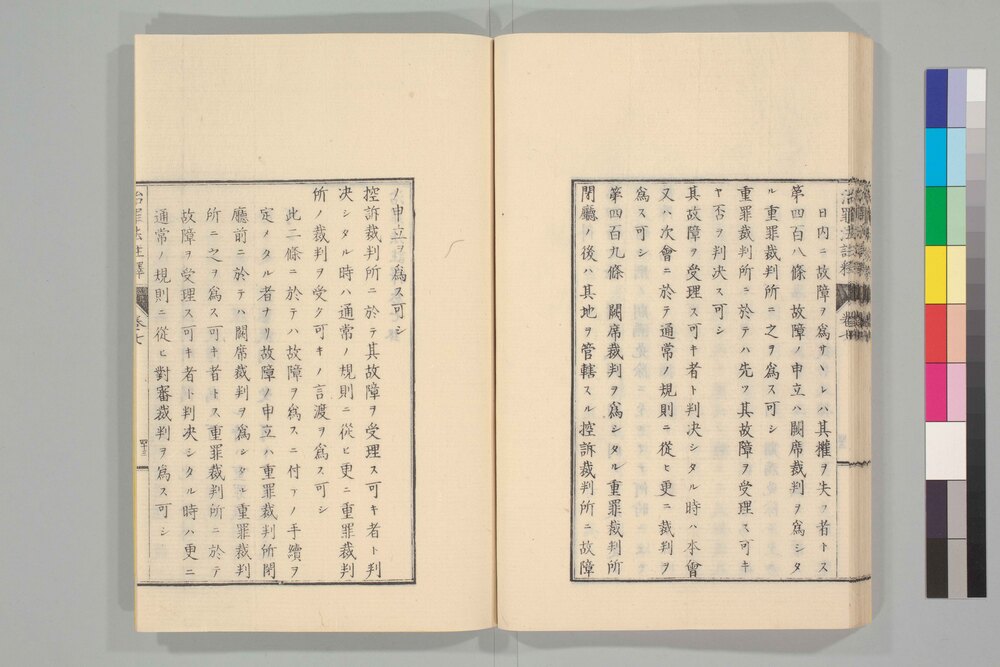 日内ニ故障ヲ爲サヽレハ其權ヲ失フ者トス
第四百八條　故障ノ申立ハ闕席裁判ヲ爲シタ
ル重罪裁判所ニ之ヲ爲ス可シ
重罪裁判所ニ於テハ先ツ其故障ヲ受理ス可キ
ヤ否ヲ判决ス可シ
其故障ヲ受理ス可キ者ト判决シタル時ハ本會
又ハ次會ニ於テ通常ノ規則ニ從ヒ更ニ裁判ヲ
爲ス可シ
第四百九條　闕席裁判ヲ爲シタル重罪裁判所
閉廳ノ後ハ其地ヲ管轄スル控訴裁判所ニ故障
ノ申立ヲ爲ス可シ
控訴裁判所ニ於テ其故障ヲ受理ス可キ者ト判
决シタル時ハ通常ノ規則ニ從ヒ更ニ重罪裁判
所ノ裁判ヲ受ク可キノ言渡ヲ爲ス可シ
此二條ニ於テハ故障ヲ爲スニ付テノ手續ヲ
定メタル者ナリ故障ノ申立ハ重罪裁判所閉
廳前ニ於テハ闕席裁判ヲ爲シタル重罪裁判
所ニ之ヲ爲ス可キ者トス重罪裁判所ニ於テ
故障ヲ受理ス可キ者ト判决シタル時ハ更ニ
通常ノ規則ニ從ヒ對審裁判ヲ爲ス可シ
治罪法註釋　卷七